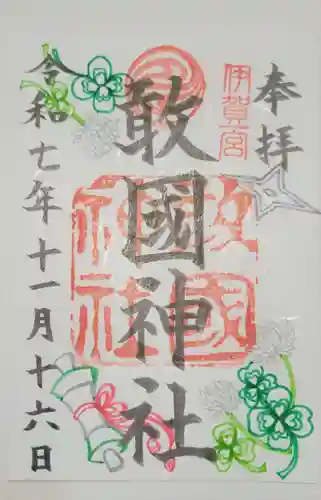 奉拝
伊賀宮
敢國神社
敢國
神社
令和七年十一月十六日